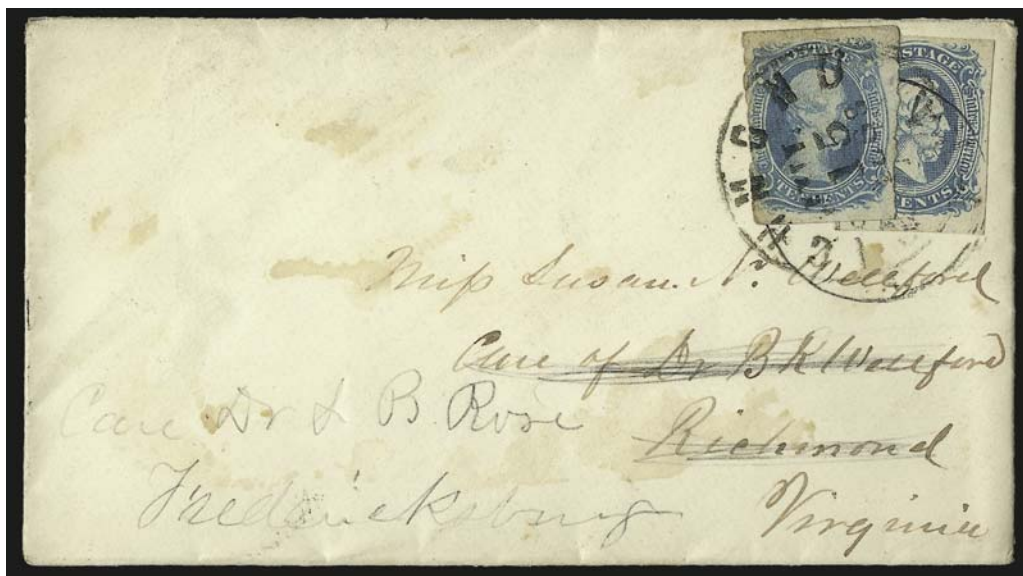 POSTAGE
TEN CENTS
STAGE
ENTS
Miss Susan N. Wellford
Care of Dr B R Wellford
Richmond
Virginia
Care Dr L B. Rose
Fredericksburg